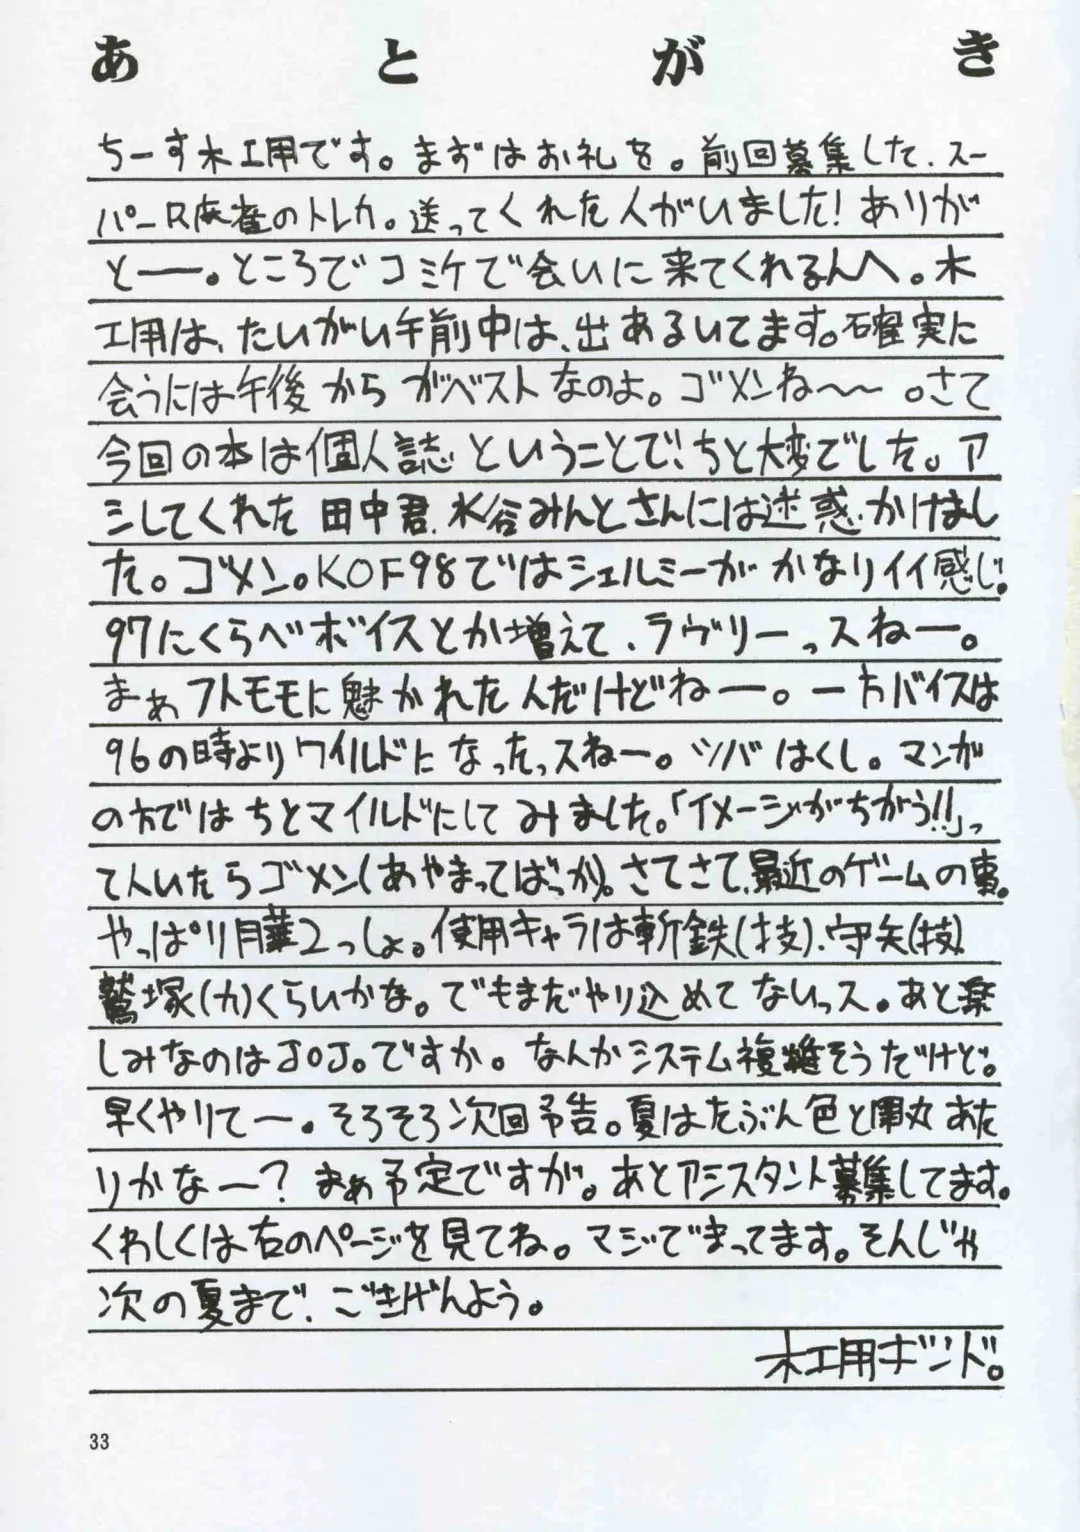 あとがき
ちーす木工用です。まずはお礼を。前回募集した、スー
パーR麻雀のトレカ。送ってくれた人がいました！ありが
とーー。ところでコミケで会いに来てくれるんへ。木
工用は、たいがい午前中は、出あるいてます。確実に
会うには午後からがベストなのよ。ゴメンね〜〜。さて
今回の本は個人誌ということで、ちと大変でした。ア
シしてくれた田中君、水谷みんとさんには迷惑かけまし
た。ゴメン。KOF98ではシェルミーがかなりイイ感じ。
97にくらべボイスとか増えて、ラヴリーっスねー。
まぁフトモモに魅かれた人だけどねー。一方バイスは
96の時よりワイルドになったっスねー。ツバはくし。マンガ
の方ではちとマイルドにしてみました。「イメージがちがう!!」っ
て人いたらゴメン(あやまってばっか)。さてさて、最近のゲームの事。
やっぱり月華2っしょ。使用キャラは斬鉄(技)、守矢(技)
鷲塚(力)くらいかな。でもまだやり込めてないっス。あと楽
しみなのはJOJO。ですか。なんかシステム複雑そうだけど。
早くやりてー。そろそろ次回予告。夏はたぶん色と開丸あた
りかなー？まぁ予定ですが。あとアシスタント募集してます。
くわしくは右のページを見てね。マジでまってます。そんじゃ
次の夏まで、ごきげんよう。
木工用ボンド。
33